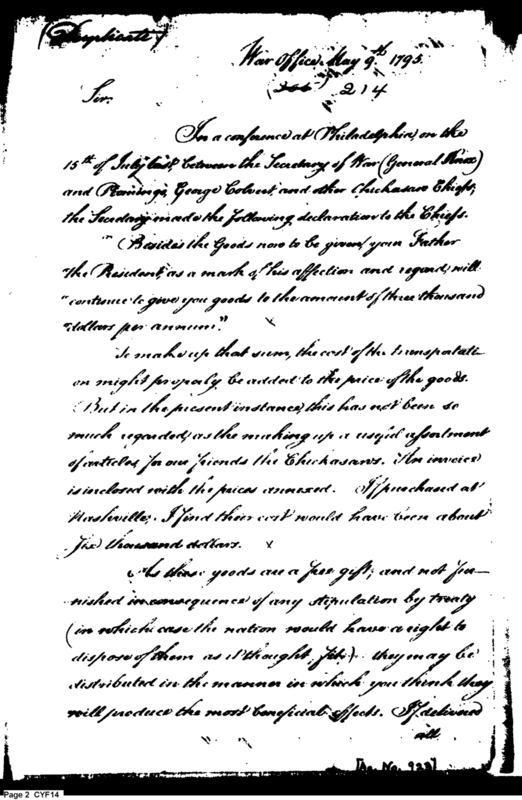 (Duplicate)
War Office May 9th 1795.
214
Sir.
In a conference at Philadelphia on the
15th of July last, between the Secretary of War (General Knox)
and Piomingo, George Colbert, and other Chickasaw Chiefs,
the Secretary made the following declaration to the Chiefs.
"Besides the Goods now to be given, your Father
"the President, as a mark of his affection and regard, will
"continue to give you goods to the amount of three thousand
"dollars per annum."
To make up that sum, the cost of the transportati-
on might properly be added to the price of the goods.
But in the present instance, this has not been so
much regarded, as the making up a useful assortment
of articles, for our friends the Chickasaws. An invoice
is inclosed with the prices annexed. If purchased at
Nashville, I find their cost would have been about
Six thousand dollars.
As these goods are a free gift, and not fur-
nished in consequence of any stipulation by treaty
(in which case the nation would have a right to
dispose of them as it thought fit) they may be
distributed in the manner in which you think they
will produce the most beneficial effects. If delivered
all
Page 2 CYF14